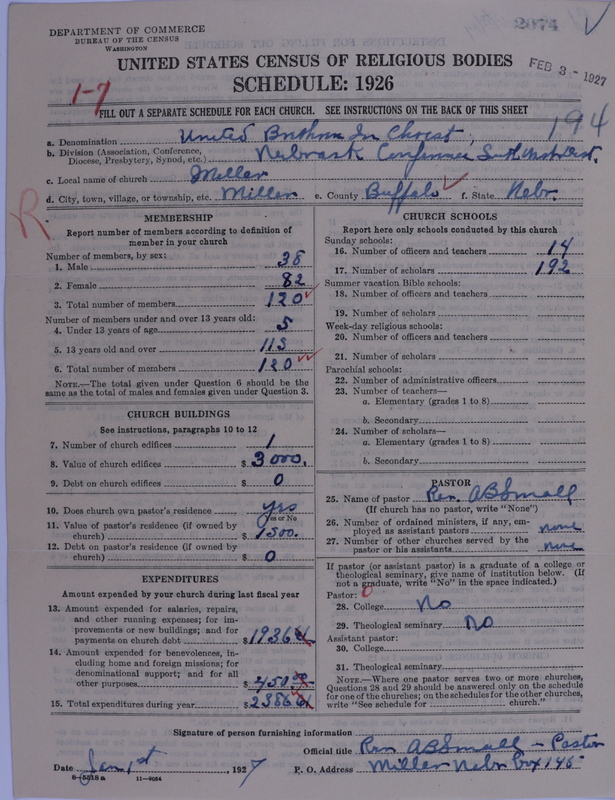 DEPARTMENT OF COMMERCE
BUREAU OF THE CENSUS
WASHINGTON
2074
UNITED STATES CENSUS OF RELIGIOUS BODIES
SCHEDULE: 1926
FEB 3 - 1927
1-7
FILL OUT A SEPARATE SCHEDULE FOR EACH CHURCH. SEE INSTRUCTIONS ON THE BACK OF THIS SHEET
194
a. Denomination United Brethren In Christ
b. Division (Association, Conference, Diocese, Presbytery, Synod, etc.) Nebrask Conference
c. Local name of church Miller
d. City, town, village, or township, etc. Miller e. County Buffalo f. State Nebr.
R
MEMBERSHIP
Report number of members according to definition of
member in your church
Number of members, by sex:
1. Male 38
2. Female 82
3. Total number of members 120
Number of members under and over 13 years old:
4. Under 13 years of age 5
5. 13 years old and over 115
6. Total number of members 120
NOTE.—The total given under Question 6 should be
same as the total of males and females given under Question 3.
CHURCH BUILDINGS
See instructions, paragraphs 10 to 12
7. Number of church edifices 1
8. Value of church edifices $ 3000.
9. Debt on church edifices $ 0
10. Does church own pastor's residence yes
Yes or No
11. Value of pastor's residence (if owned by
church) $ 1500.
12. Debt on pastor's residence (if owned by
church) $ 0
EXPENDITURES
Amount expended by your church during last fiscal year
13. Amount expended for salaries, repairs,
and other running expenses; for im-
provements or new buildings; and for
payments on church debt $ 1936
14. Amount expended for benevolences, in-
cluding home and foreign missions; for
denominational support; and for all
other purposes $ 450
15. Total expenditures during year $ 2386
CHURCH SCHOOLS
Report here only schools conducted by this church
Sunday schools:
16. Number of officers and teachers 14
17. Number of scholars 192
Summer vacation Bible schools:
18. Number of officers and teachers
19. Number of scholars
Week-day religious schools:
20. Number of officers and teachers
21. Number of scholars
Parochial schools:
22. Number of administrative officers
23. Number of teachers—
a. Elementary (grades 1 to 8)
b. Secondary
24. Number of scholars—
a. Elementary (grades 1 to 8)
b. Secondary
PASTOR
25. Name of pastor Rev. A B Small
(If church has no pastor, write "None")
26. Number of ordained ministers, if any, em-
ployed as assistant pastors none
27. Number of other churches served by the
pastor or his assistants none
If pastor (or assistant pastor) is a graduate of a college or
theological seminary, give name of institution below. (If
not a graduate, write "No" in the space indicated.)
Pastor: 0
28. College No
29. Theological seminary No
Assistant pastor:
30. College
31. Theological seminary
NOTE.—Where one pastor serves two or more churches,
Questions 28 and 29 should be answered only on the schedule
for one of the churches; on the schedules for the other churches,
write "See schedule for church."
Signature of person furnishing information
Official title Rev A B Small - Pastor
Date Jan 1st 1927 P. O. Address Miller Nebr Box 145
8-5518 a 11-9054